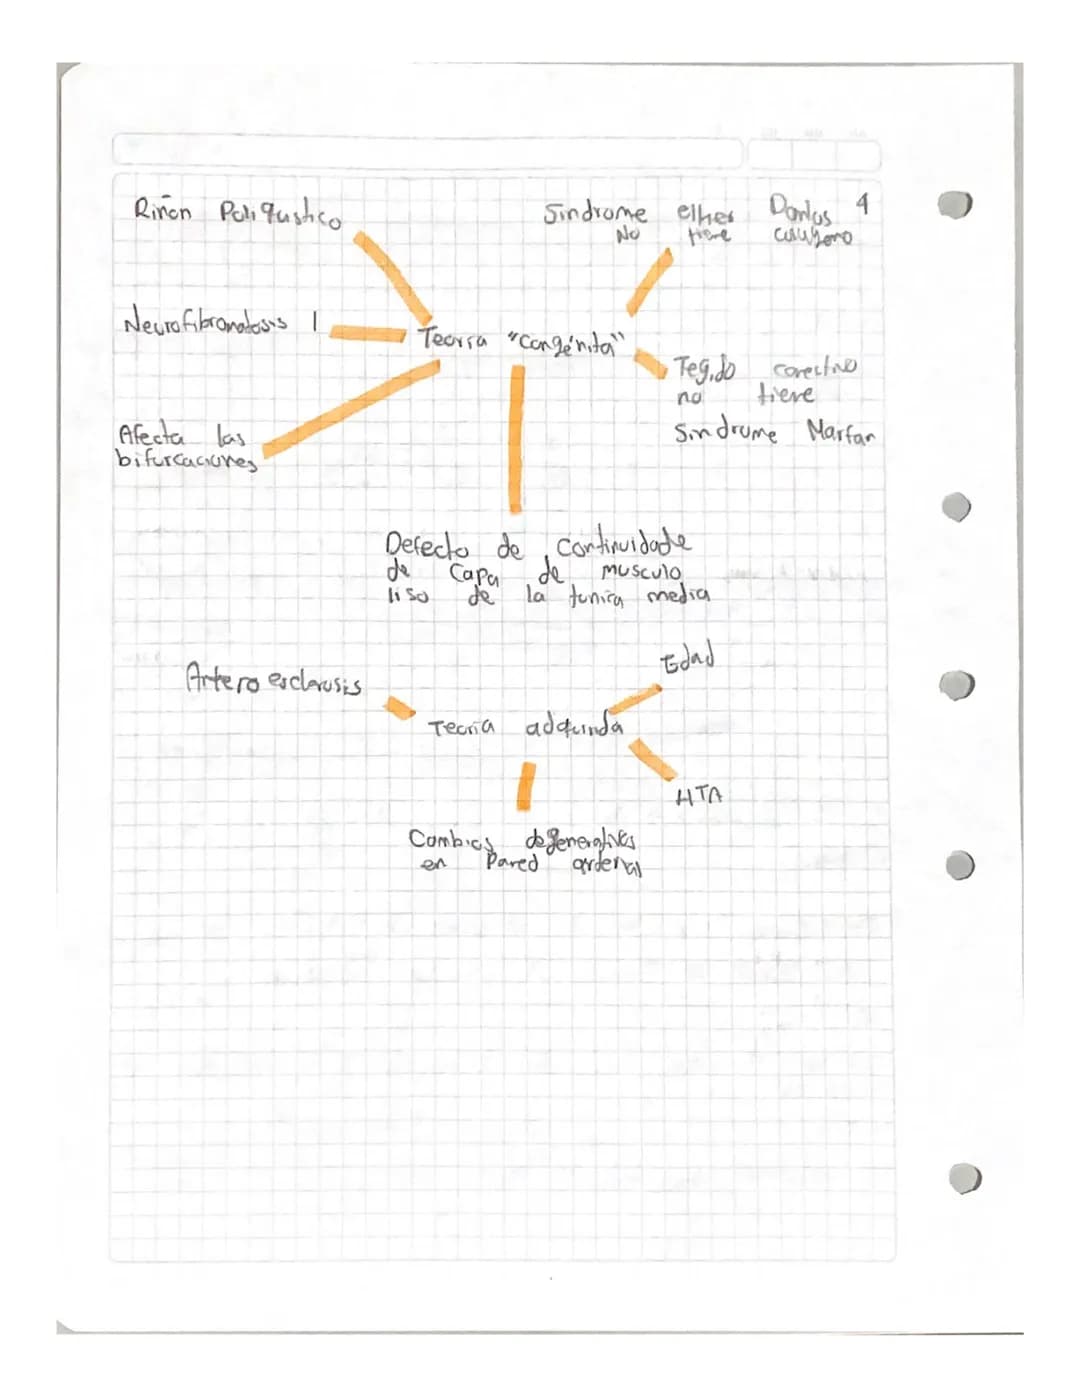 Riñon Poliqustico
Sindrome elher Danlos 4
No tiene colageno
Neurofibromatosis 1
Teoria "Congénita"
Tegido conectivo
no tiene
Sindrome Marfan
Afecta las
bifurcaciones
Defecto de continuidade
de Capa de musculo
liso de la tunica media
Edad
Arteroesclerosis
Teoria adquirida
HTA
Cambios degenerativos
en Pared arterial